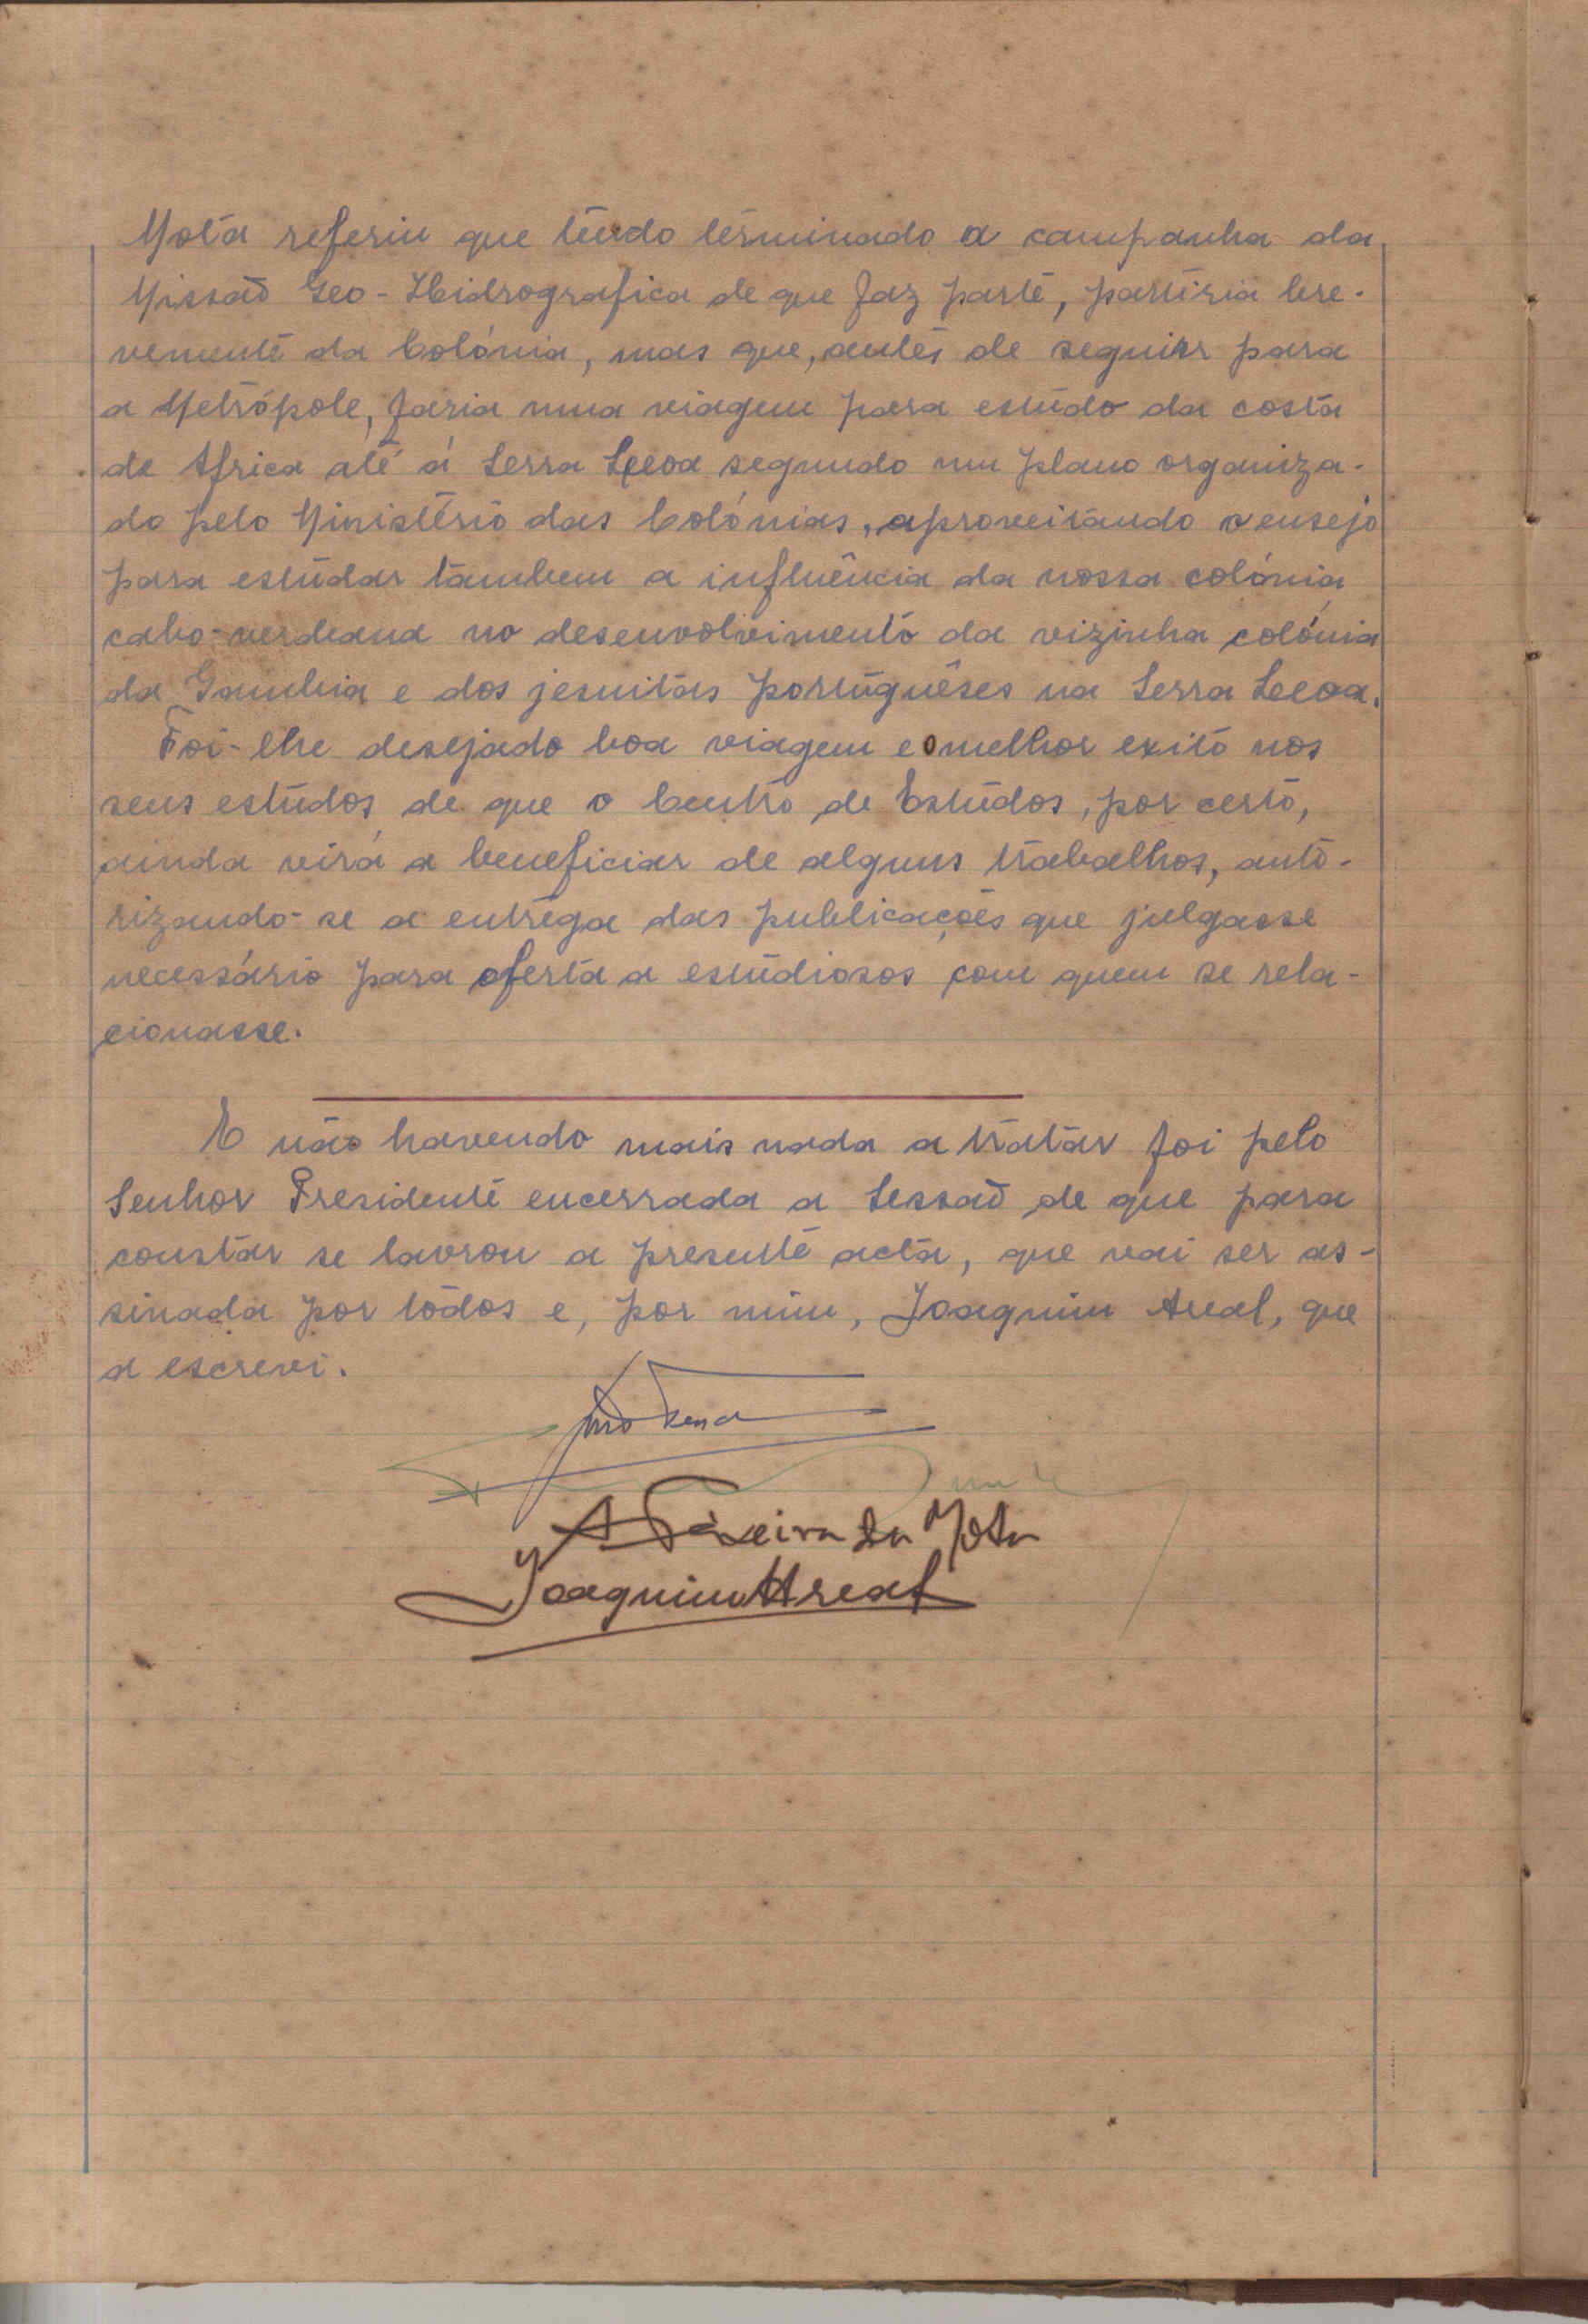 Mota referiu que tendo terminado a campanha da
Missão Geo-Hidrografica de que faz parte, partiria bre-
vemente da Colónia, mas que, antes de seguir para
a Metrópole, faria uma viagem para estudo da costa
de Africa até á Serra Leoa segundo um plano organiza-
do pelo Ministério das Colónias, aproveitando o ensejo
para estudar tambem a influência da nossa colónia
cabo-verdeana no desenvolvimento da vizinha colónia
da Gambia e dos jesuitas portuguêses na Serra Leoa.
Foi-lhe desejado boa viagem e o melhor exito nos
seus estudos de que o Centro de Estudos, por certo,
ainda virá a beneficiar de alguns trabalhos, auto-
rizando-se a entrega das publicações que julgasse
necessário para oferta a estudiosos com quem se rela-
cionasse.
E não havendo mais nada a tratar foi pelo
Senhor Presidente encerrada a Sessão de que para
constar se lavrou a presente acta, que vai ser as-
sinada por todos e, por mim, Joaquim Areal, que
a escrevi.
A Teixeira da Mota
Joaquim Areal